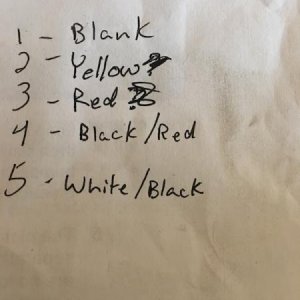 1 - Blank
2 - Yellow
3 - Red
4 - Black/Red
5 - White/Black